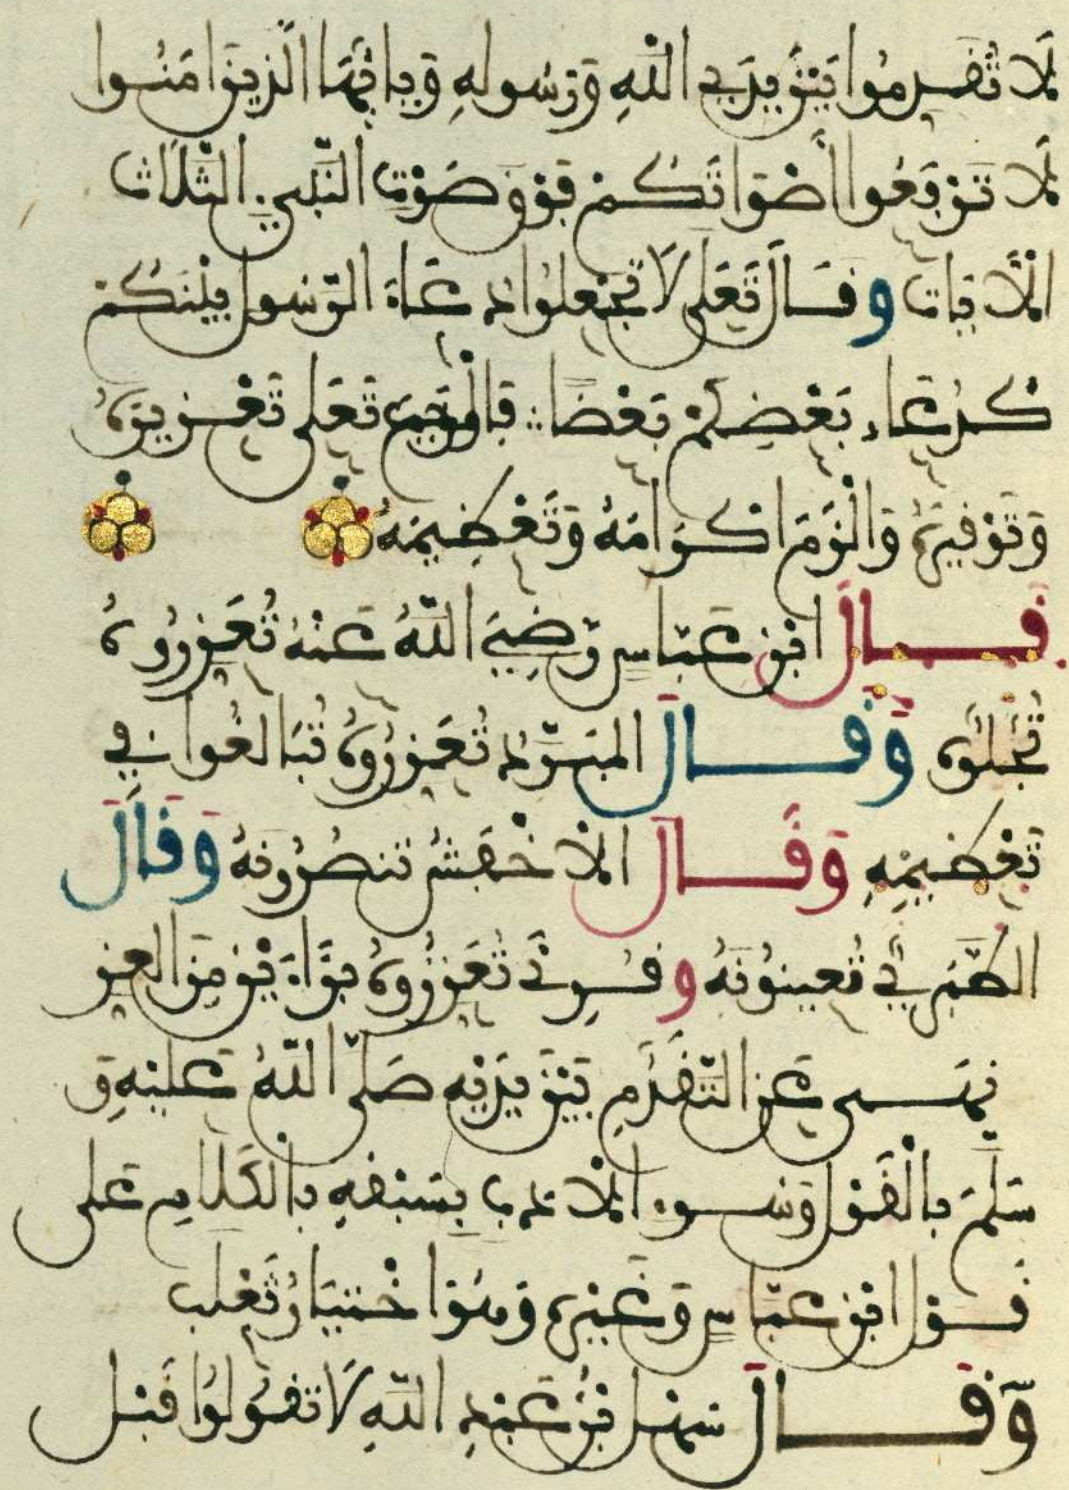 لَا تُقَدِّمُوا بَيْنَ يَدَيِ اللَّهِ وَرَسُولِهِ وَيَا أَيُّهَا الَّذِينَ ءَامَنُوا
لَا تَرْفَعُوا أَصْوَاتَكُمْ فَوْقَ صَوْتِ النَّبِيِّ الثَّلَاثَ
الْآيَاتِ وَقَالَ تَعَلَى لَا تَجْعَلُوا دُعَاءَ الرَّسُولِ بَيْنَكُمْ
كَدُعَاءِ بَعْضِكُمْ بَعْضًا فَأَوْجَبَ تَعَلَى تَعْزِيزَهُ
وَتَوْقِيرَهُ وَأَلْزَمَ إِكْرَامَهُ وَتَعْظِيمَهُ
قَالَ ابْنُ عَبَّاسٍ رَضِيَ اللَّهُ عَنْهُ تُعَزِّرُوهُ
تُجِلُّوهُ وَقَالَ الْمُبَرِّدُ تُعَزِّرُوهُ تُبَالِغُوا فِي
تَعْظِيمِهِ وَقَالَ الْأَخْفَشُ تَنْصُرُونَهُ وَقَالَ
الطَّبَرِيُّ تُعِينُونَهُ وَقُرِئَ تُعَزِّزُوهُ بِزَاءَيْنِ مِنَ الْعِزِّ
نَهَى عَنِ التَّقَدُّمِ بَيْنَ يَدَيْهِ صَلَّى اللَّهُ عَلَيْهِ وَ
سَلَّمَ بِالْقَوْلِ وَسُوءِ الْأَدَبِ بِسَبْقِهِ بِالْكَلَامِ عَلَى
قَوْلِ ابْنِ عَبَّاسٍ وَغَيْرِهِ وَهُوَ اخْتِيَارُ ثَعْلَبٍ
وَقَالَ سَهْلُ بْنُ عَبْدِ اللَّهِ لَا تَقُولُوا قَبْلَ